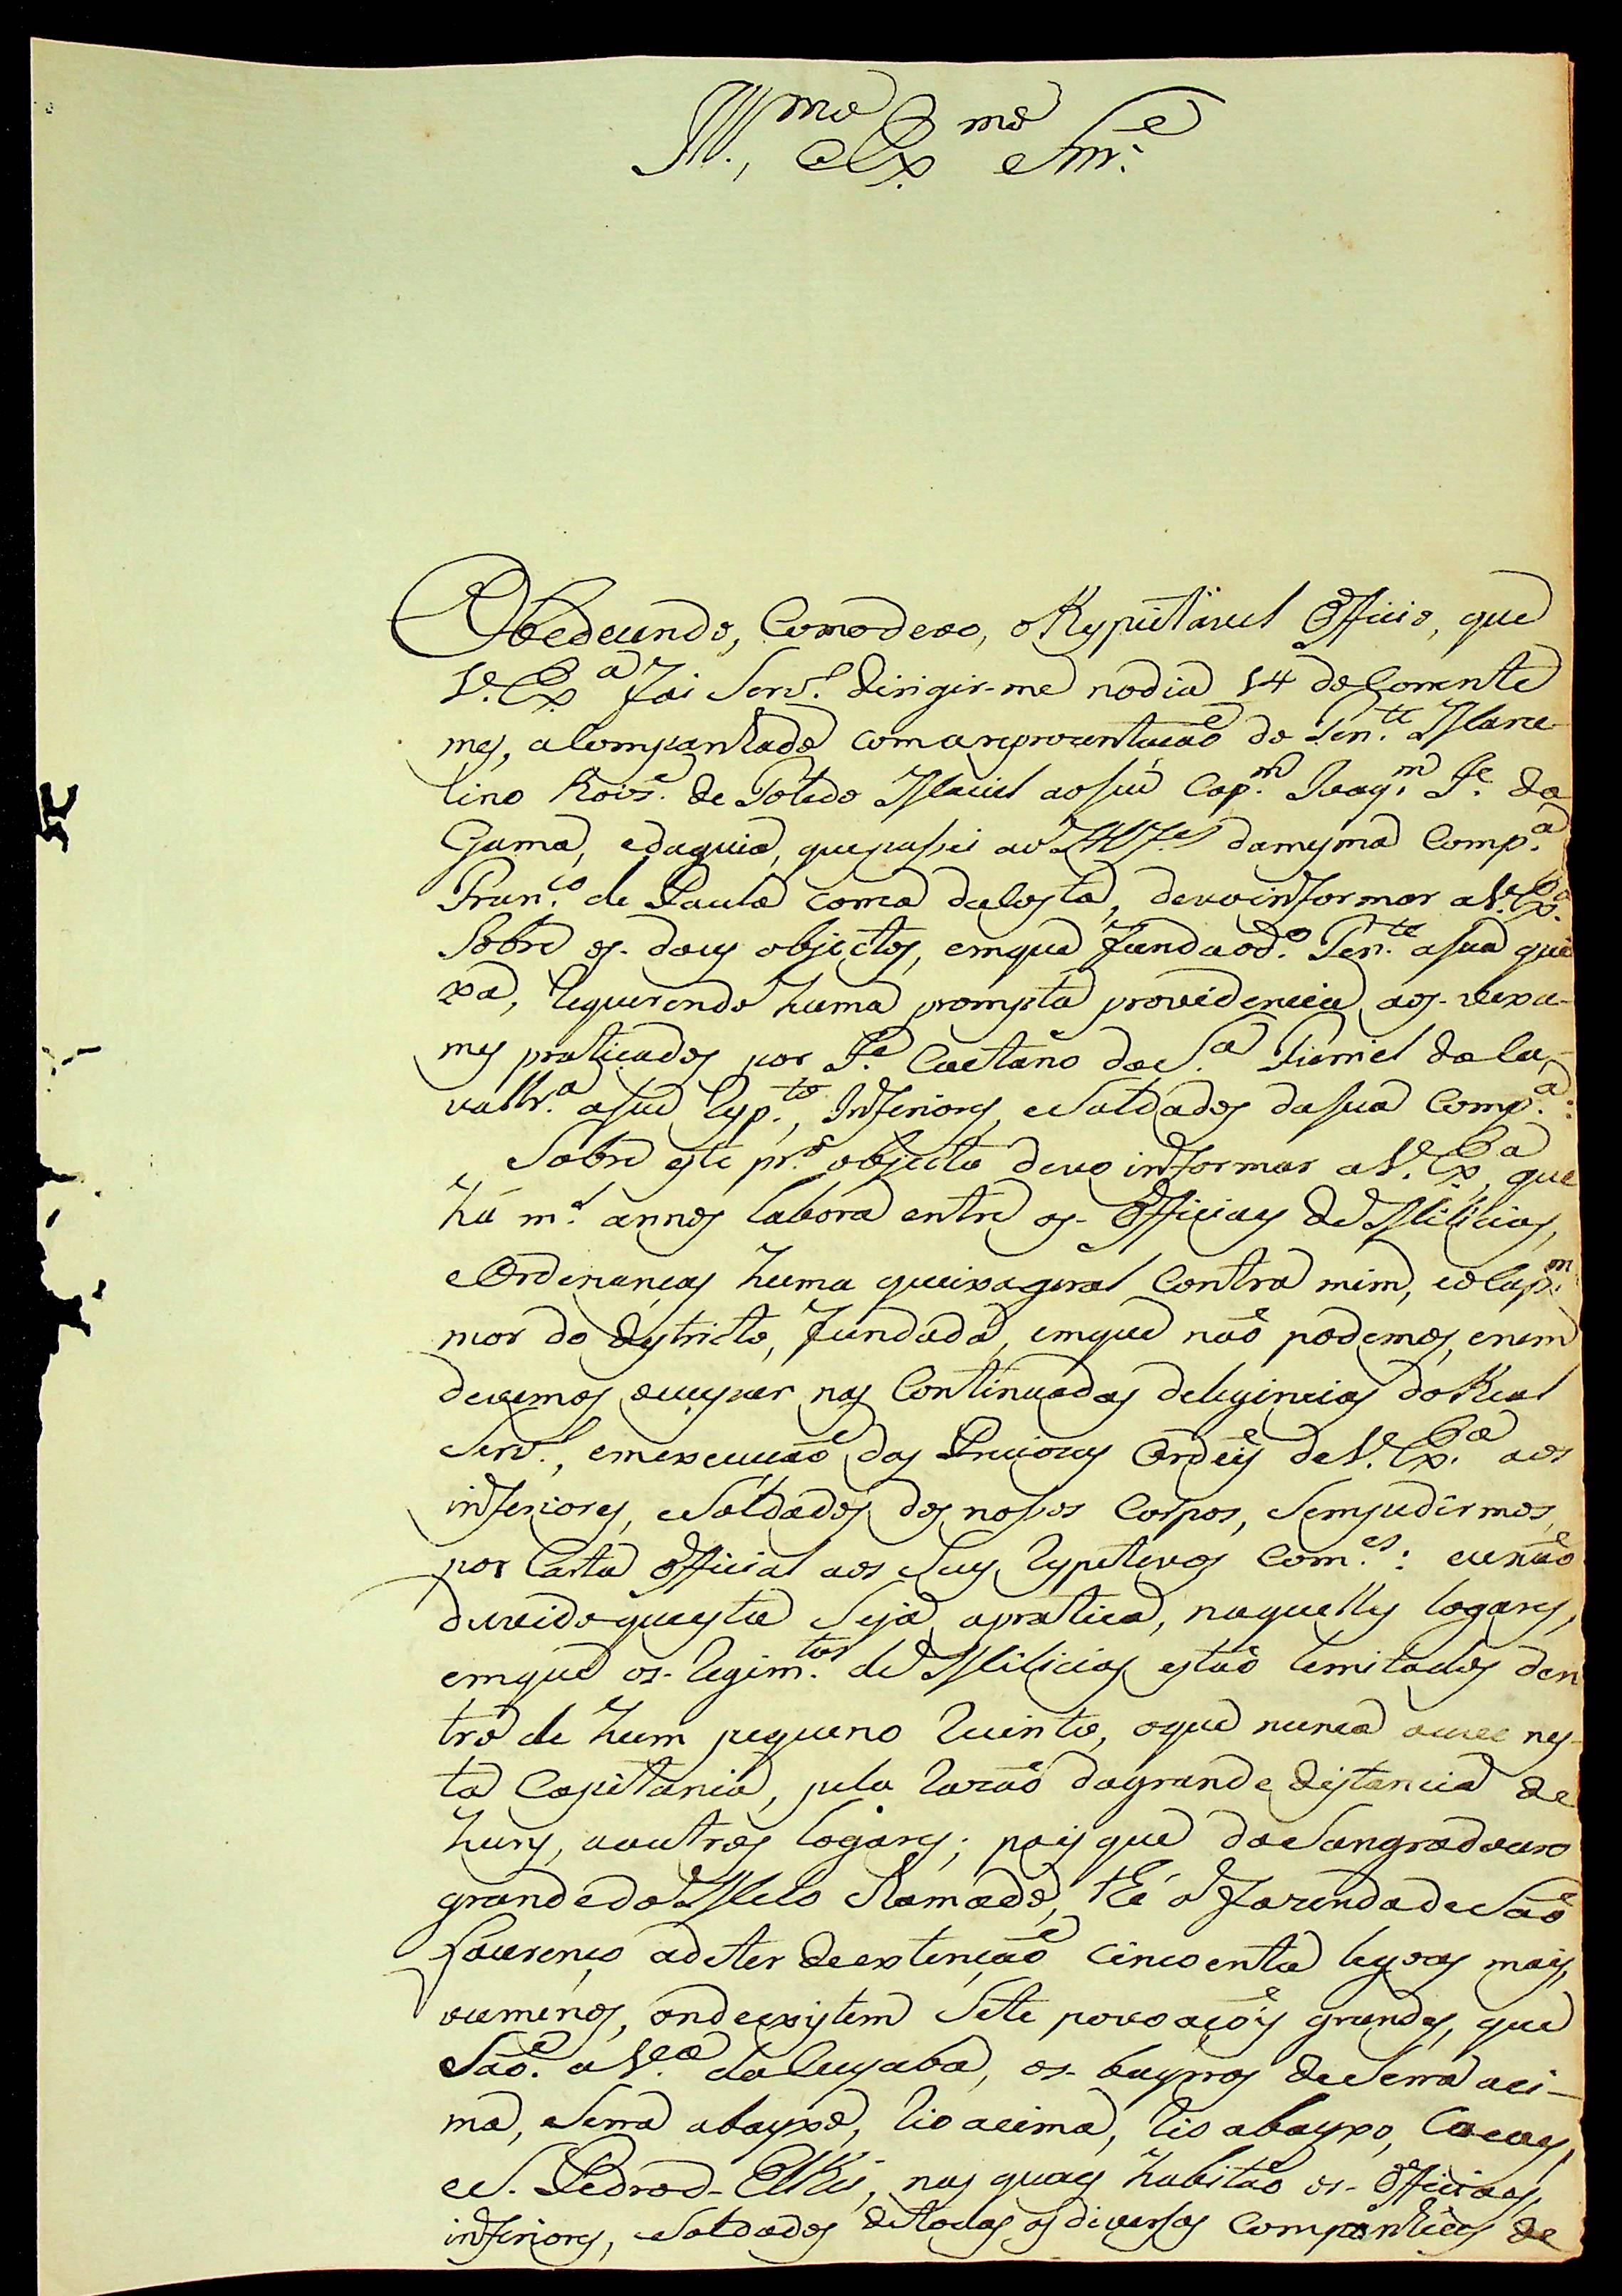 Ill.mo Ex.mo Snr.e
Obedecendo, Como devo, o Respeitavel Officio, que
V. Ex.a foi Serv.l dirigir-me no dia 14 do Corrente
mes, aCompanhado com a reprezentação do Ten.te Marce-
lino Roiz. de Toledo Maciel ao seu Cap.m Joaq.m Je. da
Gama, e da guia, que passei ao Alf.es da mesma Comp.a
Fran.co de Paula Correa da Costa, devo informar a V. Ex.a
Sobre os dous objectos, em que funda o d.o Ten.te a sua quei
xa, Requerendo huma prompta providencia aos vexa-
mes praticados por Je. Caetano da S.a Furriel da Ca-
vallr.a a seu Resp.to, Inferiores, e Soldados da sua Comp.a:
Sobre este pr.o objecto devo informar a V. Ex.a, que
há m.s annos labora entre os Officiaes de Milicias,
e Ordenanças huma queixa geral Contra mim, e o Cap.m
mor do destricto, fundada, em que não podemos, e nem
devemos occupar nas Continuadas deligencias do Real
Serv.o, em execução das Preciozas Ordeñs de V. Ex.a aos
inferiores, e Soldados dos nossos Corpos, Sem pedirmos,
por Carta Official aos Seus respetivos Com.es: eu não
duvido que esta Seja a pratica, naquelles logares,
em que os Regim.tos de Milicias estão lemitados den
tro de hum pequeno Recinto, o que nunca nes-
ta Capitania, pela Razão da grande distancia de
huns, a outros logares; pois que do Sangradouro
grande do Mello Ramado, té a Fazenda de São
Lourenço ade ter de extenção Cincoenta legoas mais,
ou menos, onde existem Sete povoaçoẽs grandes, que
São. a V.a do Cuyaba, os bayrros de Serra aci-
ma, e Serra abayxo, Rio acima, Rio abayxo, Cocaes,
e S. Pedro d- ElRei, nas quaes habitão os Officiaes,
inferiores, e Soldados de todas as diversas Companhias de